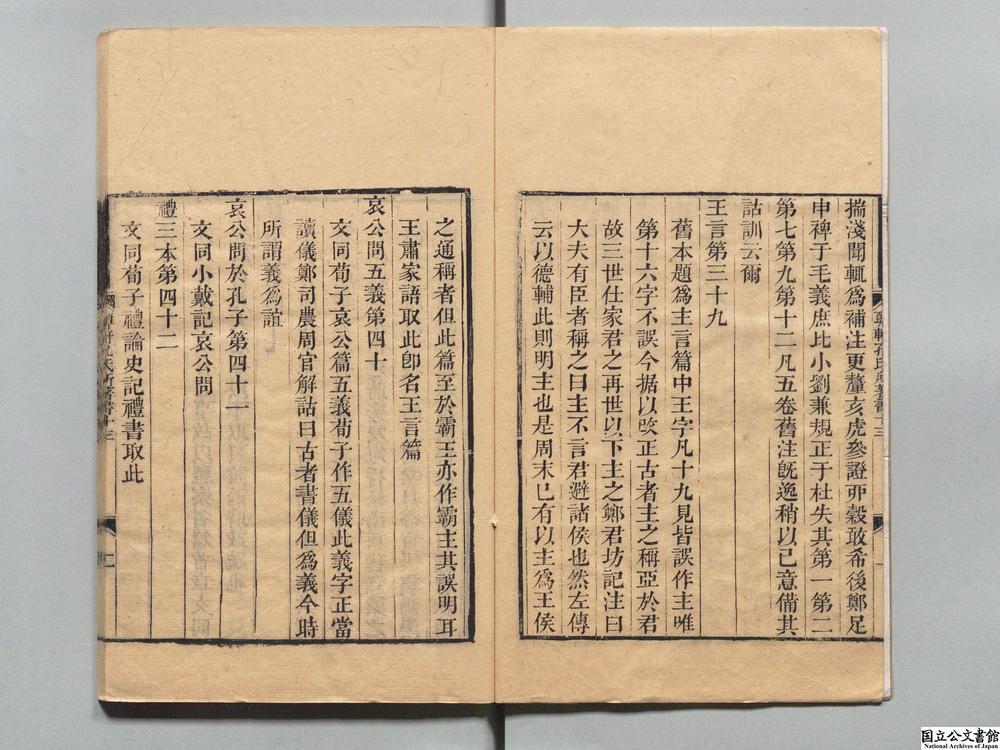 揣淺聞輒爲補注更釐亥虎參證丣穀敢希後鄭足
申稗于毛義庶比小劉兼規正于杜失其第一第二
第七第九第十二凡五卷舊注旣逸稍以己意備其
詁訓云爾
王言第三十九
舊本題爲主言篇中王字凡十九見皆誤作主唯
第十六字不誤今据以改正古者主之稱亞於君
故三世仕家君之再世以下主之鄭君坊記注曰
大夫有臣者稱之曰主不言君避諸侯也然左傳
云以德輔此則明主也是周末已有以主爲王侯
之通稱者但此篇至於霸王亦作霸主其誤明耳
王肅家語取此卽名王言篇
哀公問五義第四十
文同荀子哀公篇五義荀子作五儀此義字正當
讀儀鄭司農周官解詁曰古者書儀但爲義今時
所謂義爲誼
哀公問於孔子第四十一
文同小戴記哀公問
禮三本第四十二
文同荀子禮論史記禮書取此
国立公文書館
National Archives of Japan